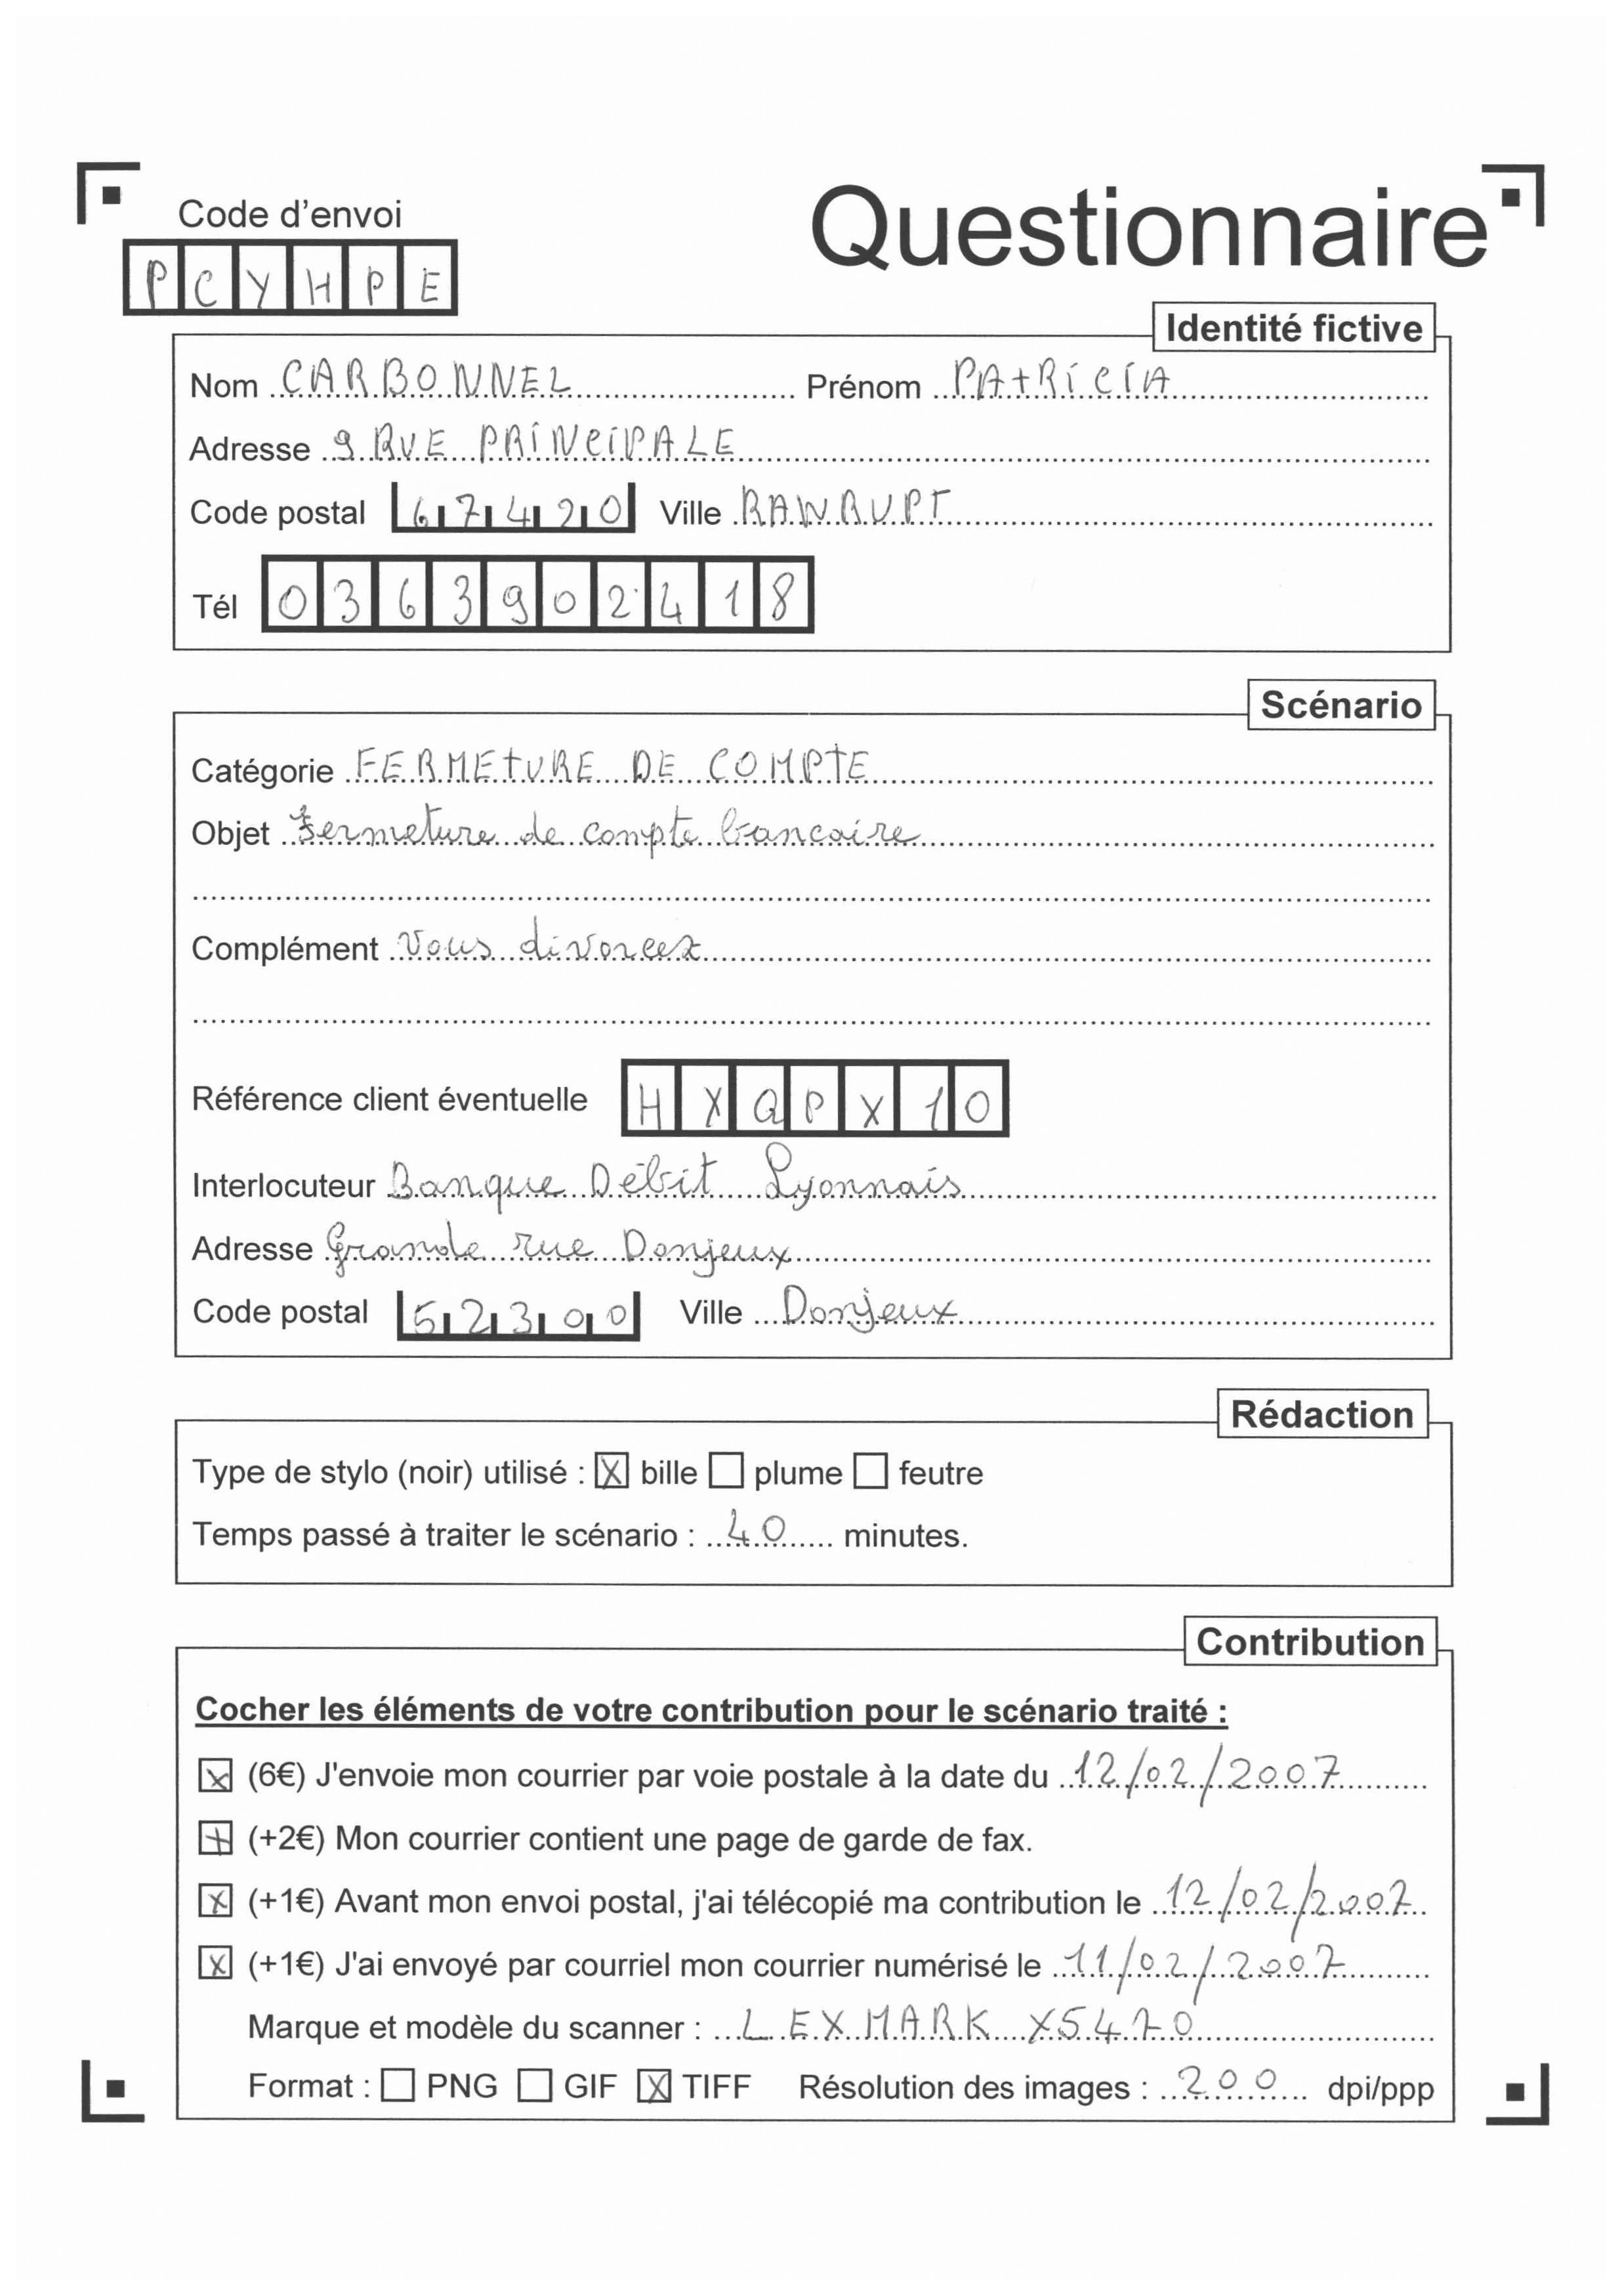 Questionnaire
Code d'envoi
PCYHPE
Identité fictive
Nom CARBONNEL Prénom PAtRiCiA
Adresse 9 RUE PRiNCiPALE
Code postal 67420 Ville RANRUPT
Tél 0363902418
Scénario
Catégorie FERMEtURE DE COMPtE
Objet Fermeture de compte bancaire
Complément Vous divorcez
Référence client éventuelle HXQPX10
Interlocuteur Banque Débit Lyonnais
Adresse Grande rue Donjeux
Code postal 52300 Ville Donjeux
Rédaction
Type de stylo (noir) utilisé : X bille plume feutre
Temps passé à traiter le scénario : 40 minutes.
Contribution
Cocher les éléments de votre contribution pour le scénario traité :
X (6€) J'envoie mon courrier par voie postale à la date du 12/02/2007
X (+2€) Mon courrier contient une page de garde de fax.
X (+1€) Avant mon envoi postal, j'ai télécopié ma contribution le 12/02/2007
X (+1€) J'ai envoyé par courriel mon courrier numérisé le 11/02/2007
Marque et modèle du scanner : LEXMARK X5470
Format : PNG GIF X TIFF Résolution des images : 200 dpi/ppp